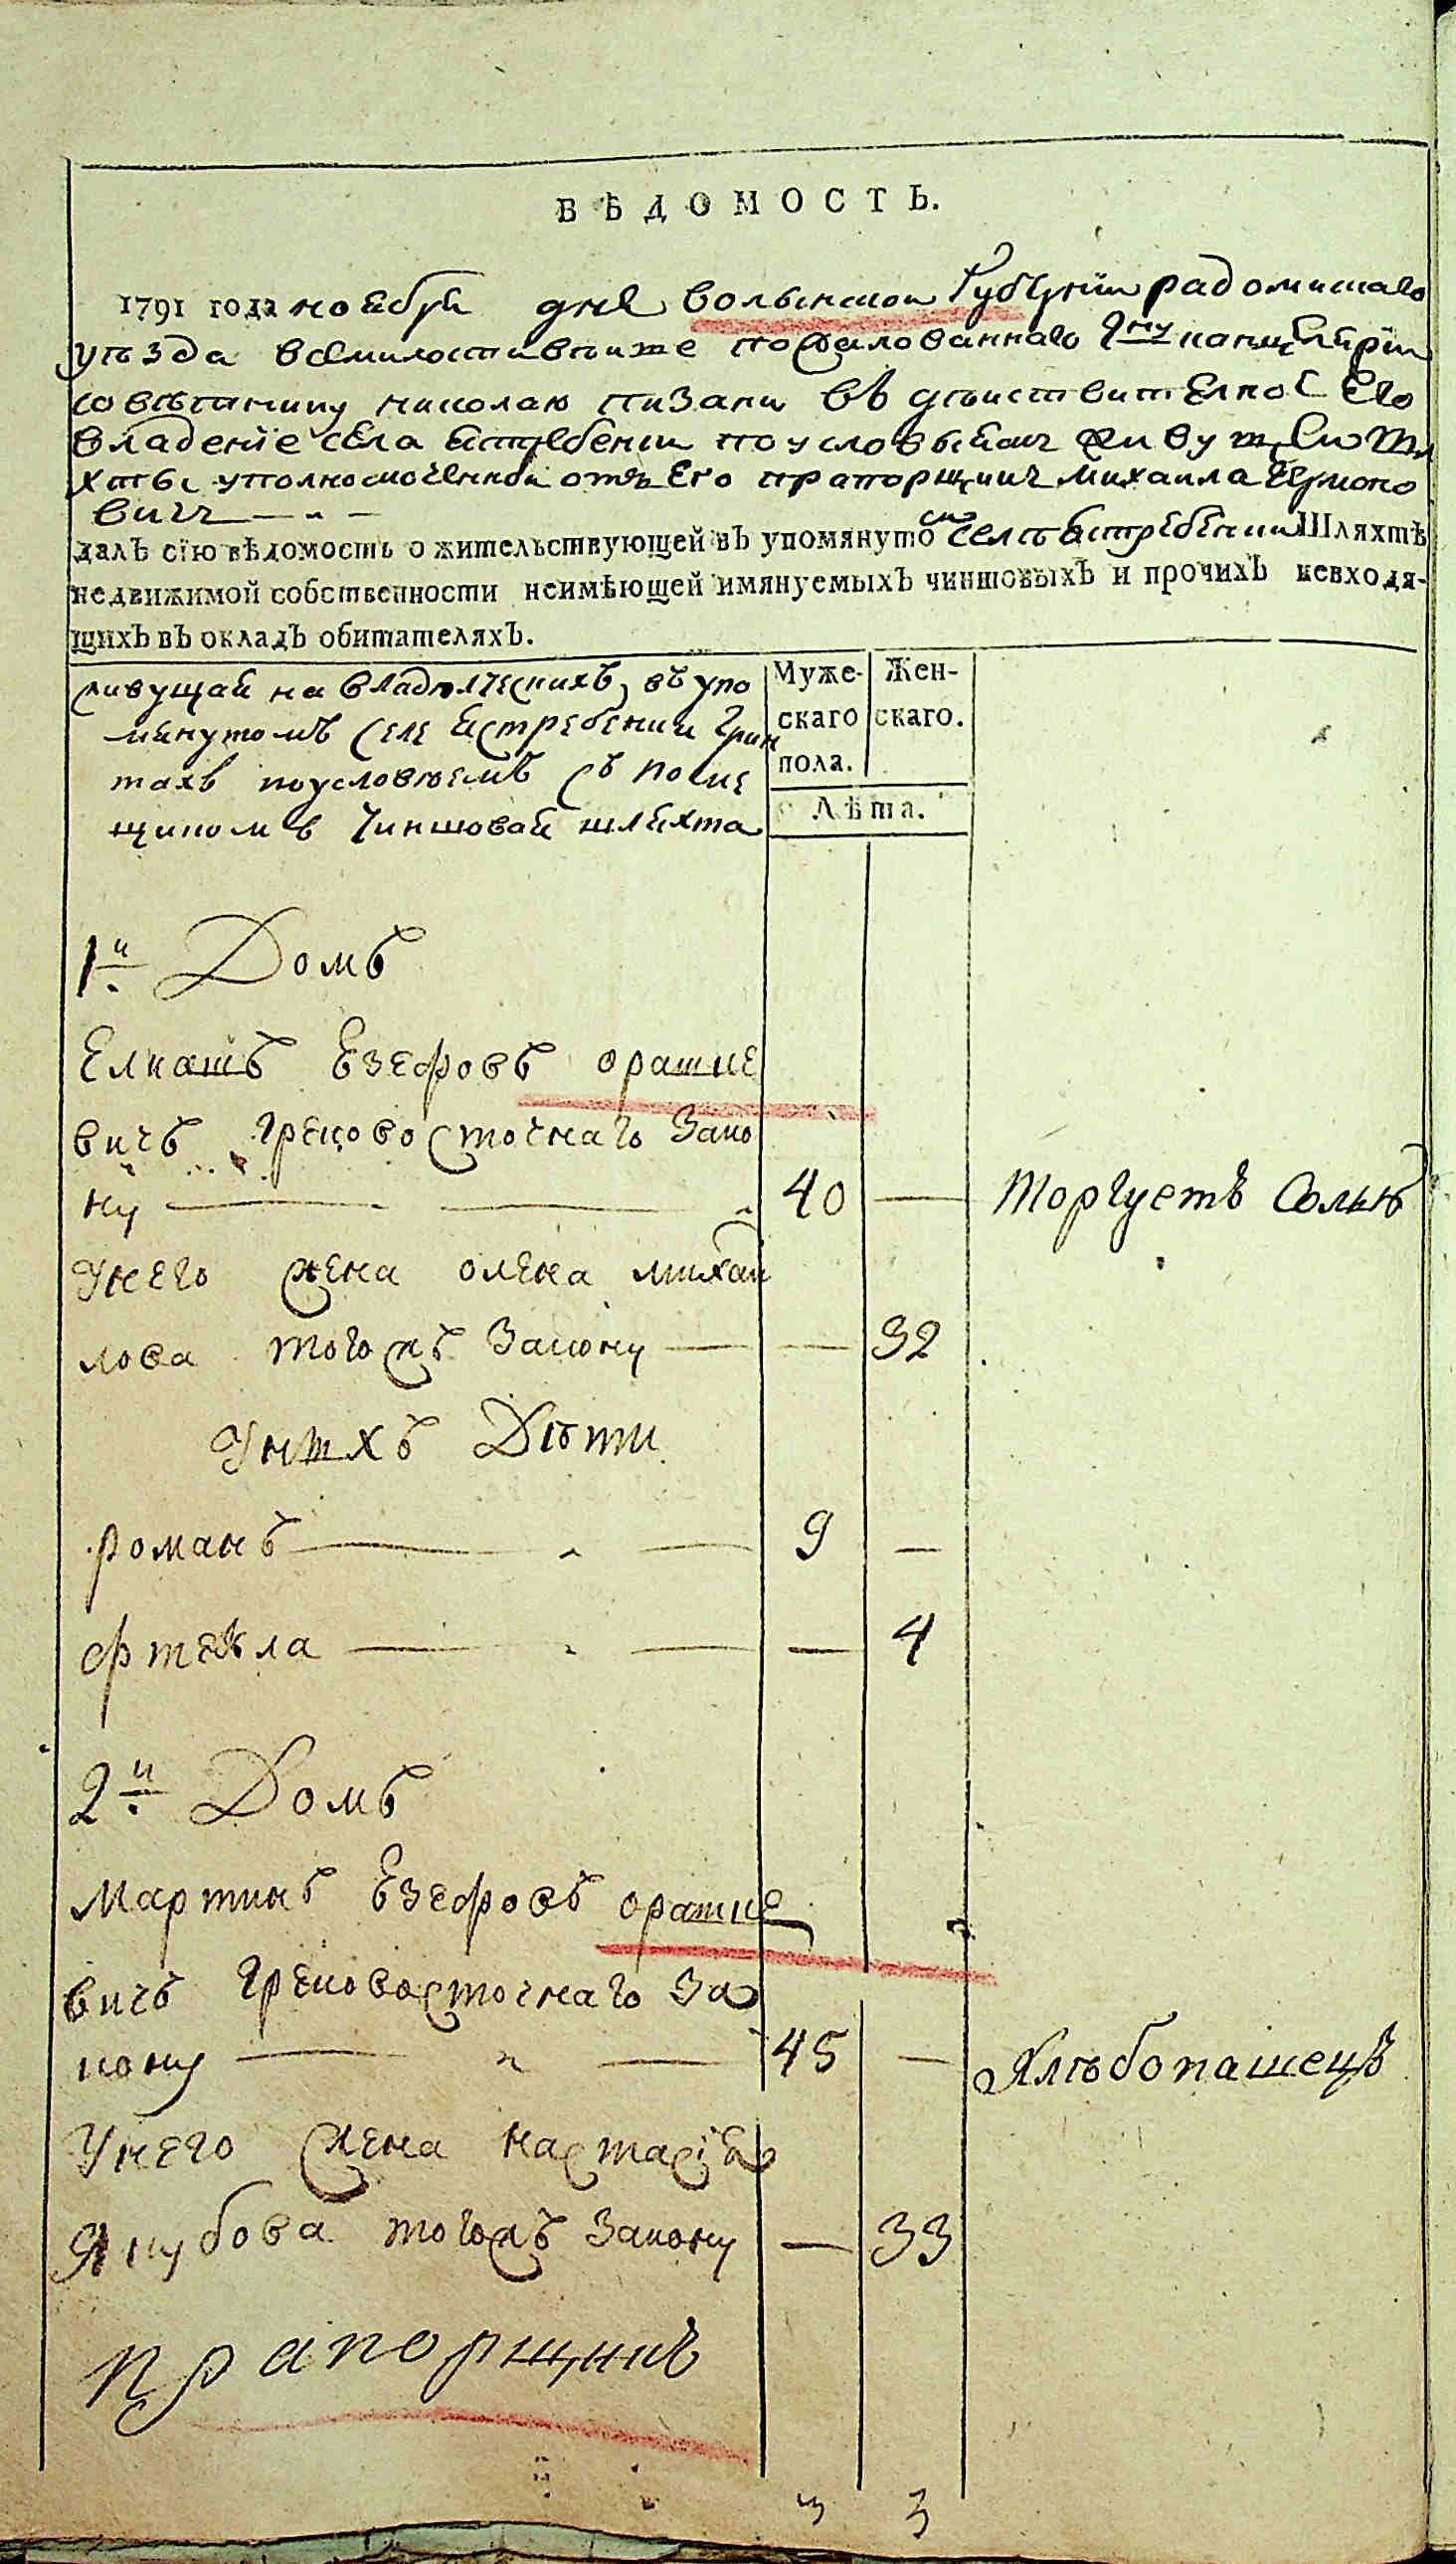 ВѢДОМОСТЬ.
1791 года ноября дня волынской Губернїи радомислского
уѣзда всемилостивѣише пожалованнаго канцелярїи
совѣтнику николаю пизани въ дѣиствителное Его
владенїе села Ястребенки по условьямъ живущей шля
хты уполномоченной отъ Его прапорщикъ михаила
вичъ
далъ сїю вѣдомость о жительствующей въ упомянутомъ селѣ Ястребенки Шляхтѣ
недвижимой собственности неимѣющей имянуемыхъ чиншовыхъ и прочихъ невходя-
щихъ въ окладъ обитателяхъ.
живущая на владѣлческихъ въ упо
мянутомъ селе Ястребенки грун
тахъ поусловїемъ съ поме
щикомъ чиншовая шляхта
Муже-
скаго
пола.
Жен-
скаго.
Лѣта.
1й Домъ
Езефовъ орашке
вичъ грековосточнаго зако
ну 40 — торгуетъ Солью
Унего жена олена михаи
лова тогожъ закону — — 32
Унихъ Дѣти
романъ — 9 —
фтекла — — 4
2й Домъ
Мартинъ Езефовъ орашке
вичъ грековосточнаго за
кону — 45 — Хлѣбопашецъ
Унего жена настасїя
Якубова тогожъ закону — 33
прапорщикъ
3 3